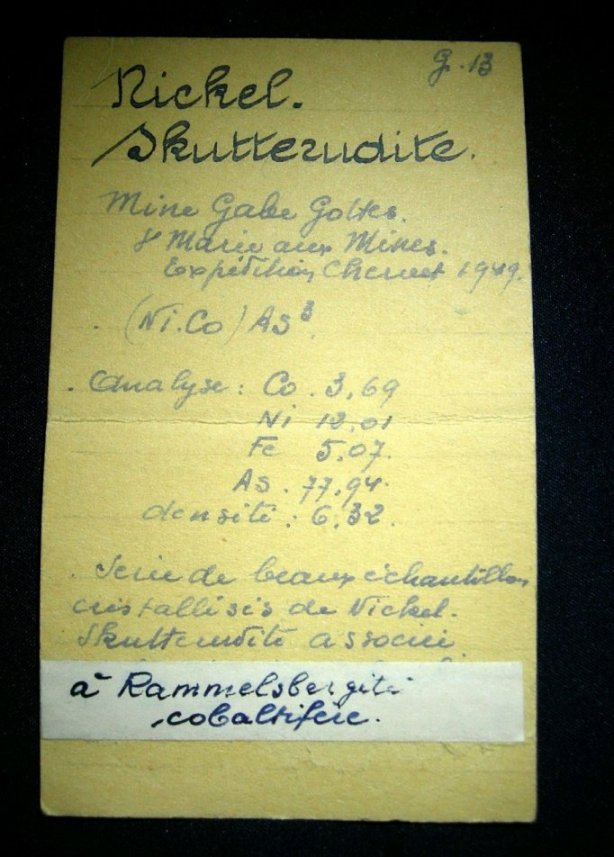 G. 13
Nickel.
Skutterudite.
Mine Gabe Gottes.
Ste Marie aux Mines.
Expédition Chervet 1949.
(Ni.Co) As³.
Analyse: Co. 3,69
Ni 12,01
Fe 5,07.
As. 77,94.
densité: 6,32.
Serie de beaux échantillons
cristallisés de Nickel.
Skutterudite associée
à Rammelsbergite
cobaltifère.